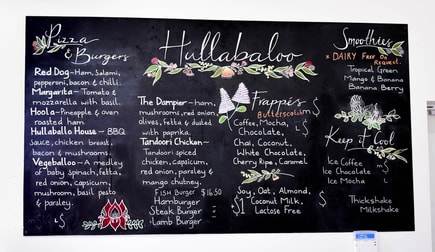 Pizza
& Burgers
Red Dog - Ham, Salami,
pepperoni, bacon & chilli.
Margarita - Tomato &
mozzarella with basil.
Hoola - Pineapple & oven
roasted ham.
Hullaballo House - BBQ
Sauce, chicken breast,
bacon & mushrooms.
Vegeballoo - A medley
of baby spinach, fetta,
red onion, capsicum,
mushroom, basil pesto
& parsley.
Hullabaloo
The Dampier - ham,
mushrooms, red onion,
olives, fetta & dusted
with paprika.
Tandoori Chicken -
Tandoori spiced
chicken, capsicum,
red onion, parsley &
mango chutney.
Fish Burger $16.50
Hamburger
Steak Burger
Lamb Burger
Frappés
Butterscotch
Coffee, Mocha,
Chocolate,
Chai, Coconut,
White Chocolate,
Cherry Ripe, Caramel
$
Soy, Oat, Almond,
$1 Coconut Milk,
Lactose Free
Smoothies
* DAIRY Free On
Request.
Tropical Green
Mango & Banana
Banana Berry
Keep it Cool
Ice Coffee
Ice Chocolate
Ice Mocha
Thickshake
Milkshake